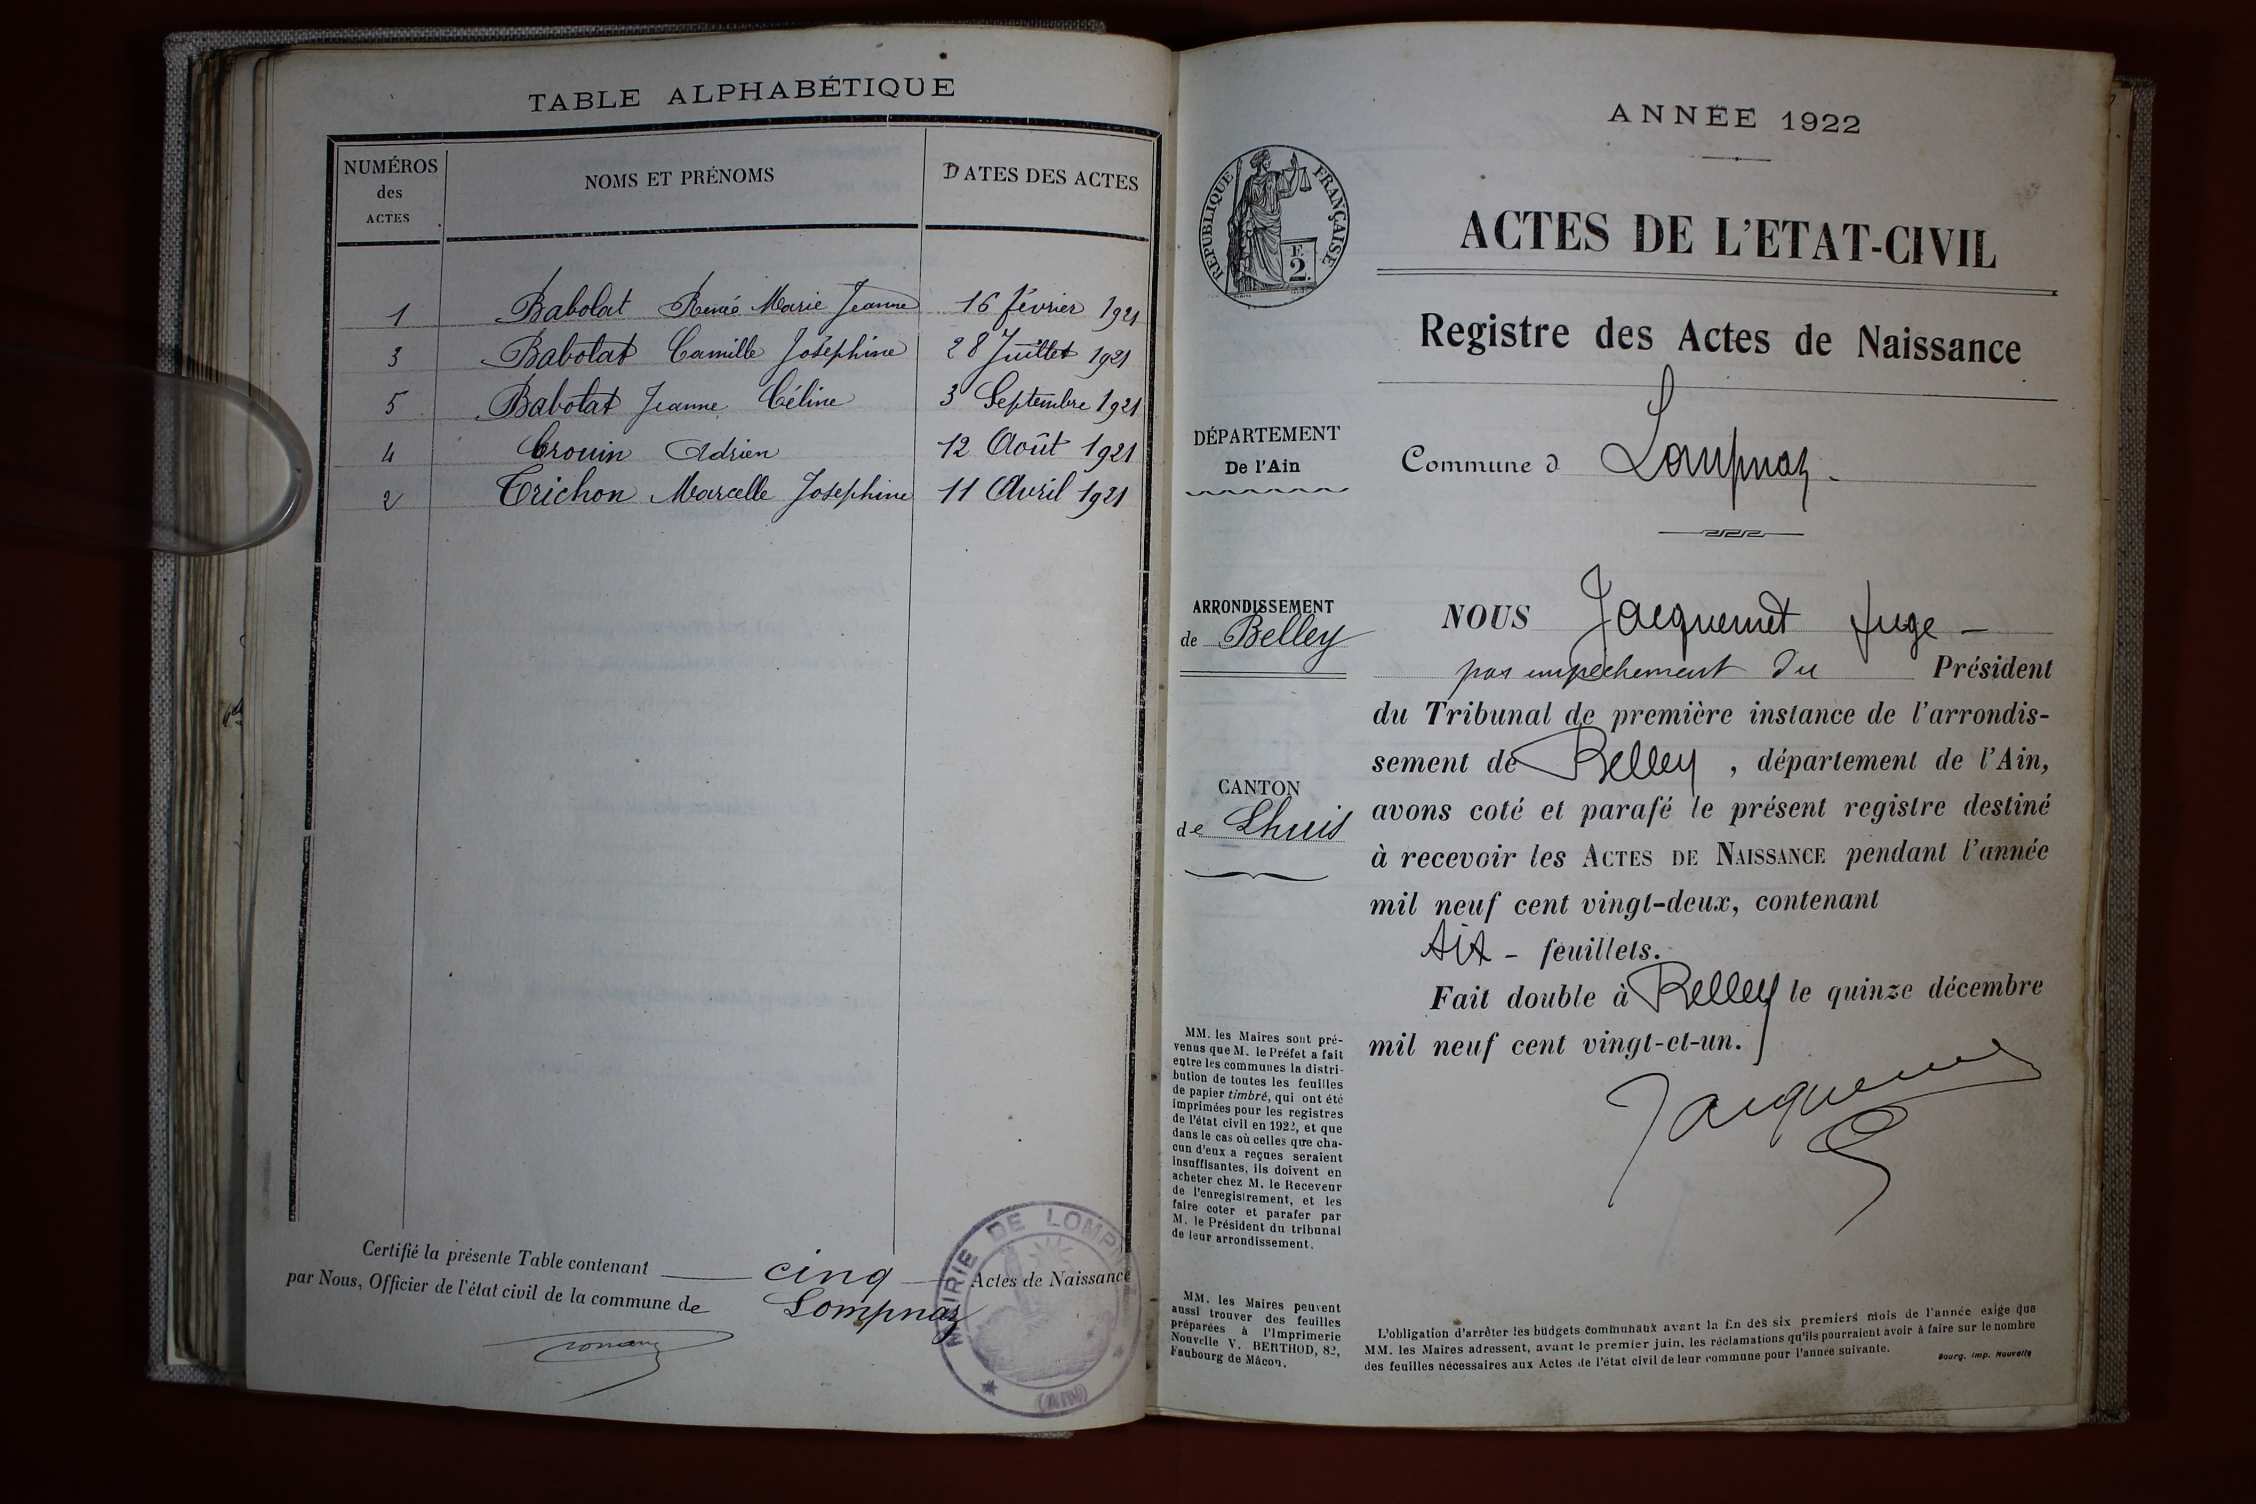 TABLE ALPHABÉTIQUE
NUMÉROS
des
ACTES
NOMS ET PRÉNOMS
DATES DES ACTES
1 Babolat Renée Marie Jeanne 16 février 1921
3 Babolat Camille Joséphine 28 Juillet 1921
5 Babolat Jeanne Céline 3 Septembre 1921
4 Crouin Adrien 12 Août 1921
2 Trichon Marcelle Joséphine 11 Avril 1921
Certifié la présente Table contenant cinq Actes de Naissance
par Nous, Officier de l'état civil de la commune de Lompnaz
MAIRIE DE LOMP
(AIN)
ANNÉE 1922
RÉPUBLIQUE FRANÇAISE
F.
2.
ACTES DE L'ETAT-CIVIL
Registre des Actes de Naissance
DÉPARTEMENT
De l'Ain
Commune d Lompnaz.
ARRONDISSEMENT
de Belley
CANTON
de Lhuis
NOUS Jacquemet Juge -
par empêchement du Président
du Tribunal de première instance de l'arrondis-
sement de Belley, département de l'Ain,
avons coté et parafé le présent registre destiné
à recevoir les ACTES DE NAISSANCE pendant l'année
mil neuf cent vingt-deux, contenant
six - feuillets.
Fait double à Belley le quinze décembre
mil neuf cent vingt-et-un.
Jacquemet
MM. les Maires sont pré-
venus que M. le Préfet a fait
entre les communes la distri-
bution de toutes les feuilles
de papier timbré, qui ont été
imprimées pour les registres
de l'état civil en 1922, et que
dans le cas où celles que cha-
cun d'eux a reçues seraient
insuffisantes, ils doivent en
acheter chez M. le Receveur
de l'enregistrement, et les
faire coter et parafer par
M. le Président du tribunal
de leur arrondissement.
MM. les Maires peuvent
aussi trouver des feuilles
préparées à l'Imprimerie
Nouvelle V. BERTHOD, 82,
Faubourg de Mâcon.
L'obligation d'arrêter les budgets communaux avant la fin des six premiers mois de l'année exige que
MM. les Maires adressent, avant le premier juin, les réclamations qu'ils pourraient avoir à faire sur le nombre
des feuilles nécessaires aux Actes de l'état civil de leur commune pour l'année suivante.
Bourg. Imp. Nouvelle